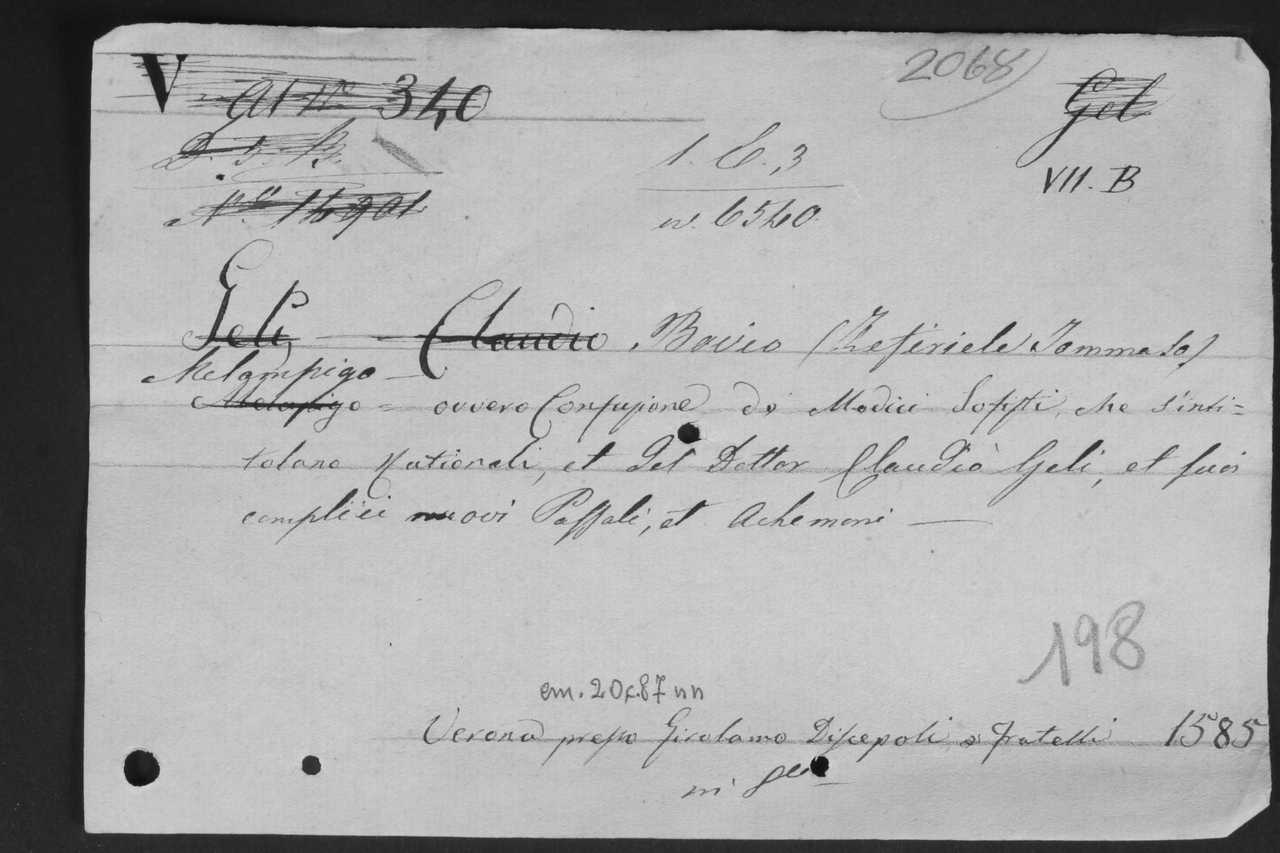 V 340
2068
Gel
D. S. B.
1. E. 3
VII. B
n. 6540
Geli Claudio Bovio (Zefiriele Tommaso)
Melampigo
Melampigo = ovvero Confusione de Medici Sofisti, che s'inti=
tolano Rationali, et del Dottor Claudio Geli, et suoi
complici nuovi Passali, et Achemoni
198
cm. 20x87 nn
Verona presso Girolamo Discepoli e Fratelli 1585
in